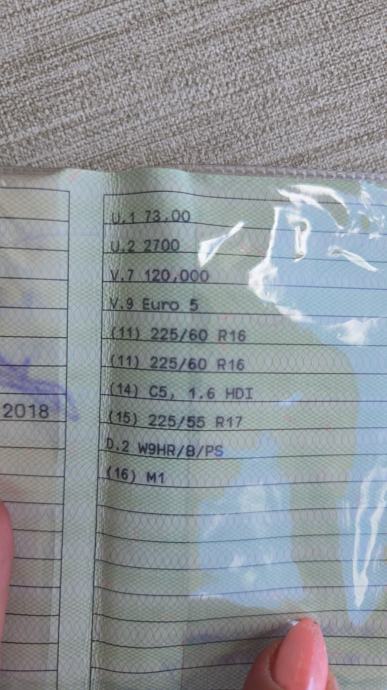 U.1 73.00
U.2 2700
V.7 120,000
V.9 Euro 5
(11) 225/60 R16
(11) 225/60 R16
(14) C5, 1.6 HDI
2018
(15) 225/55 R17
D.2 W9HR/8/PS
(16) M1